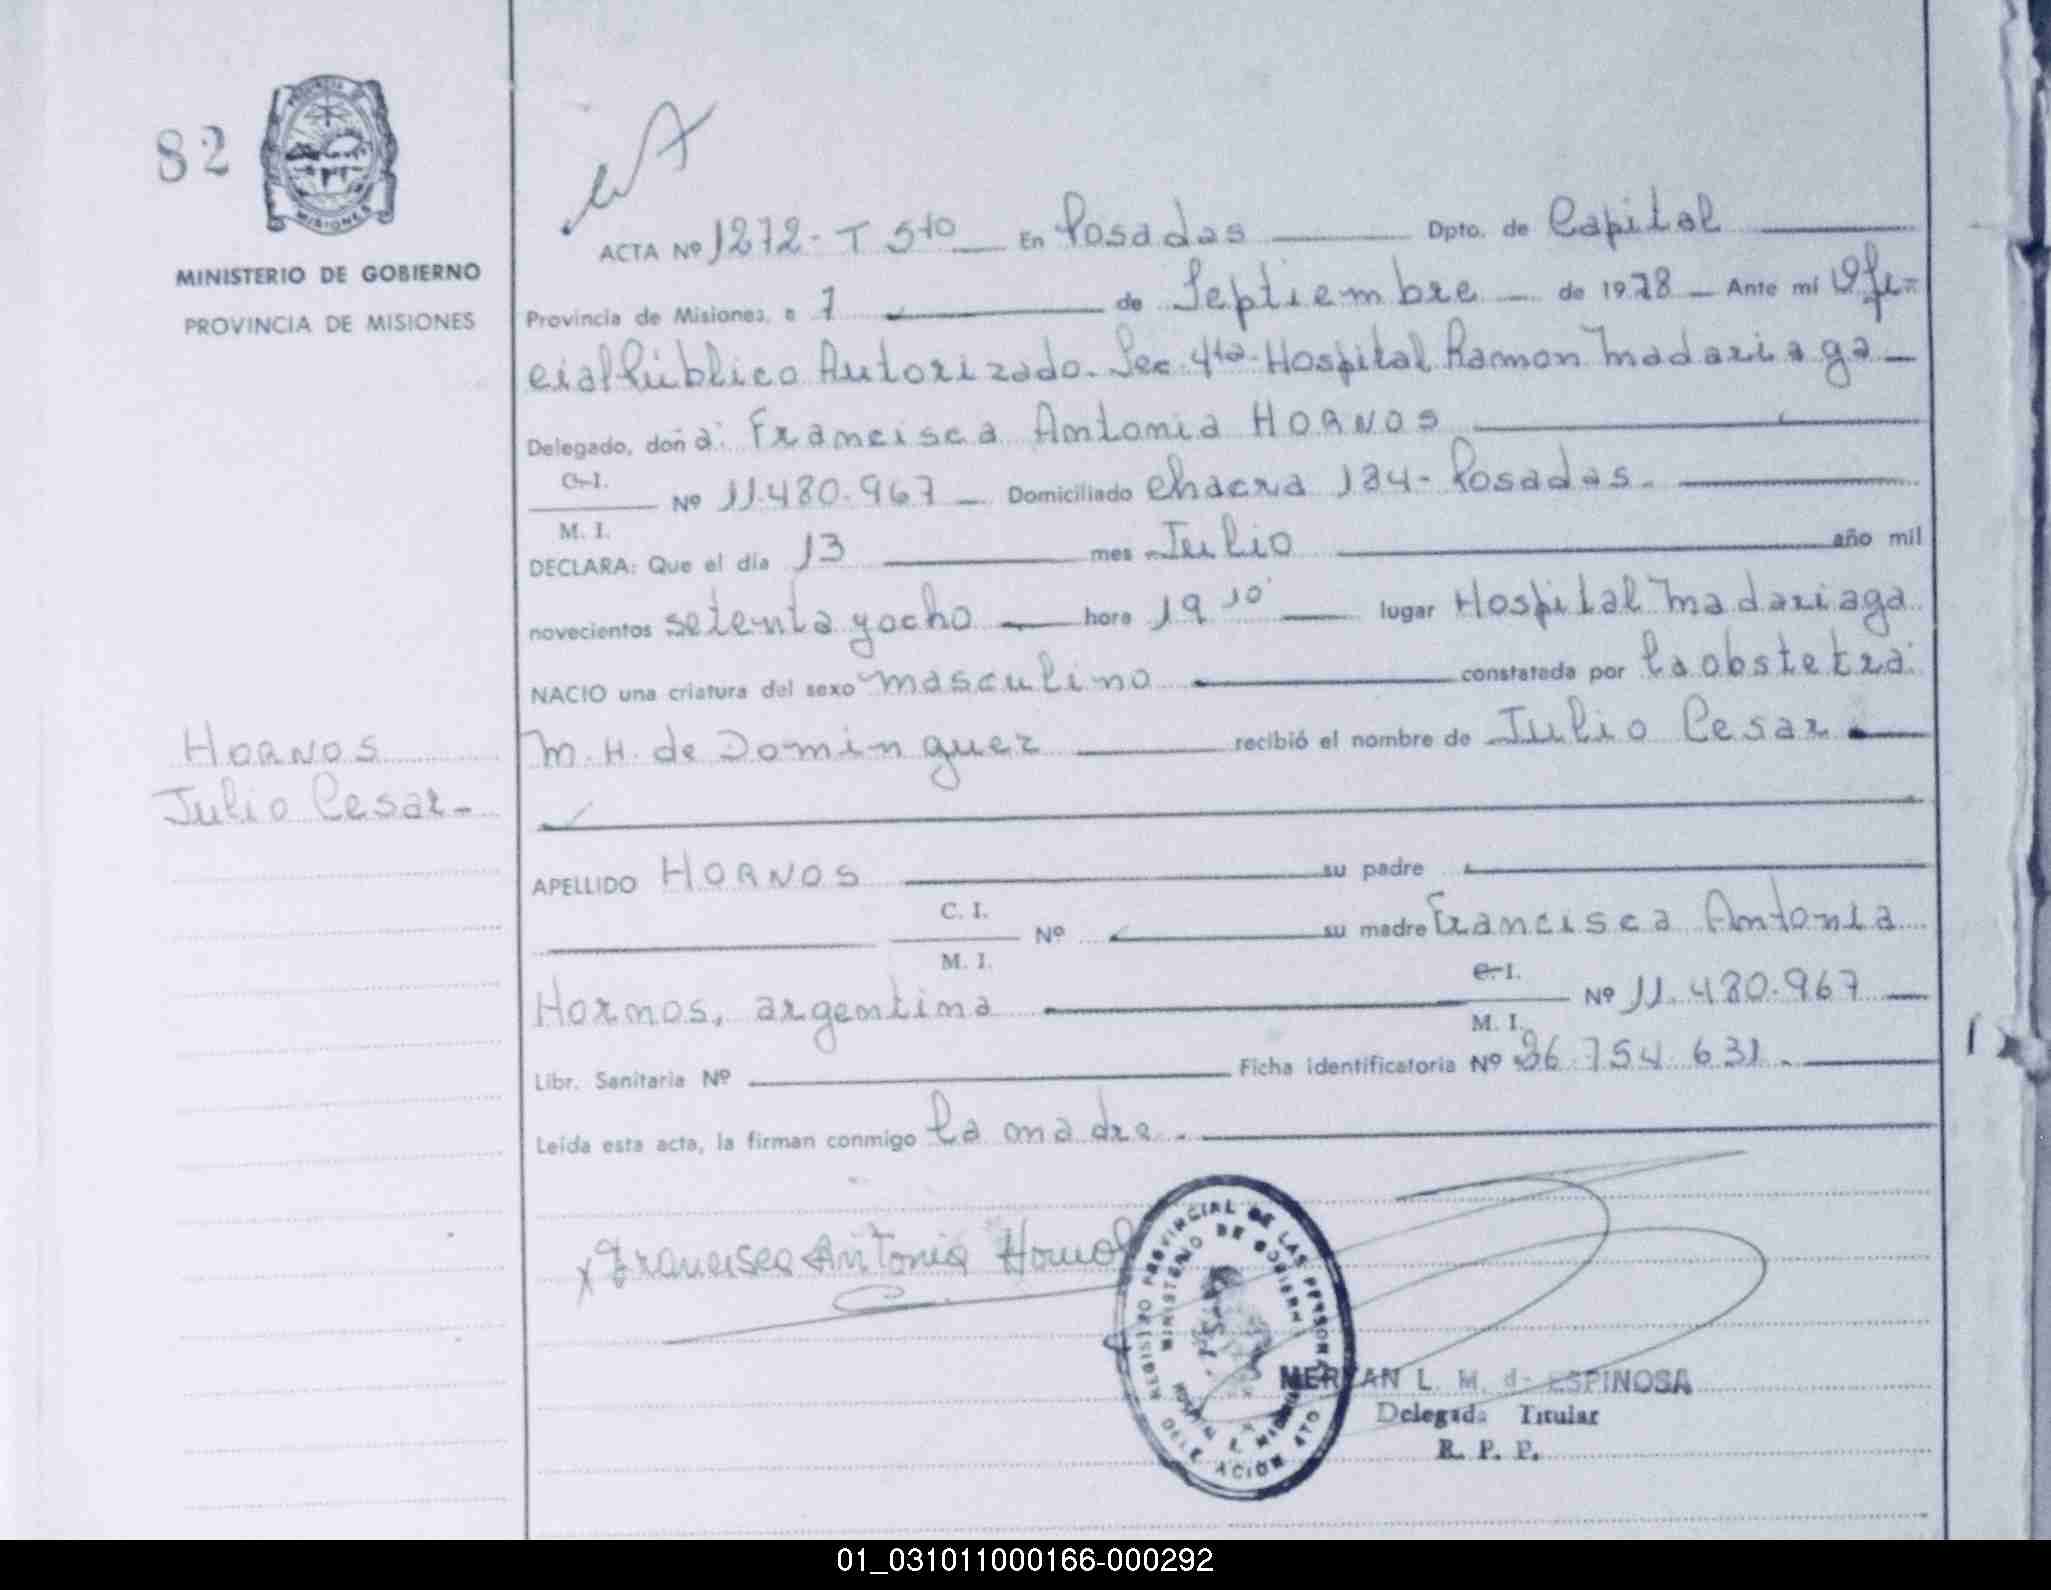 82
PROVINCIA DE
MISIONES
MINISTERIO DE GOBIERNO
PROVINCIA DE MISIONES
ACTA Nº 1272 - T 5to En Posadas Dpto. de Capital
Provincia de Misiones, a 7 de Septiembre de 1978 Ante mí Ofi=
cial Público Autorizado. Sec. 4ta Hospital Ramon Madariaga
Delegado, doña: Francisca Antonia HORNOS
C.I.
M. I.
Nº 11.480.967 - Domiciliado chacra 134 - Posadas.
DECLARA: Que el día 13 mes Julio año mil
novecientos setenta y ocho hora 19 10' lugar Hospital Madariaga
NACIO una criatura del sexo masculino constatada por la obstetra:
M. H. de Dominguez recibió el nombre de Julio Cesar
HORNOS
Julio Cesar -
APELLIDO HORNOS su padre
C. I.
M. I.
Nº su madre Francisca Antonia
Hornos, argentina C.I.
M. I.
Nº 11.480.967
Libr. Sanitaria Nº Ficha identificatoria Nº 26.754.631.
Leída esta acta, la firman conmigo la madre.
x Francisca Antonia Hornos
REGISTRO PROVINCIAL DE LAS PERSONAS
MINISTERIO DE GOBIERNO
L. M. de ESPINOSA
Delegada Titular
R. P. P.
01_031011000166-000292